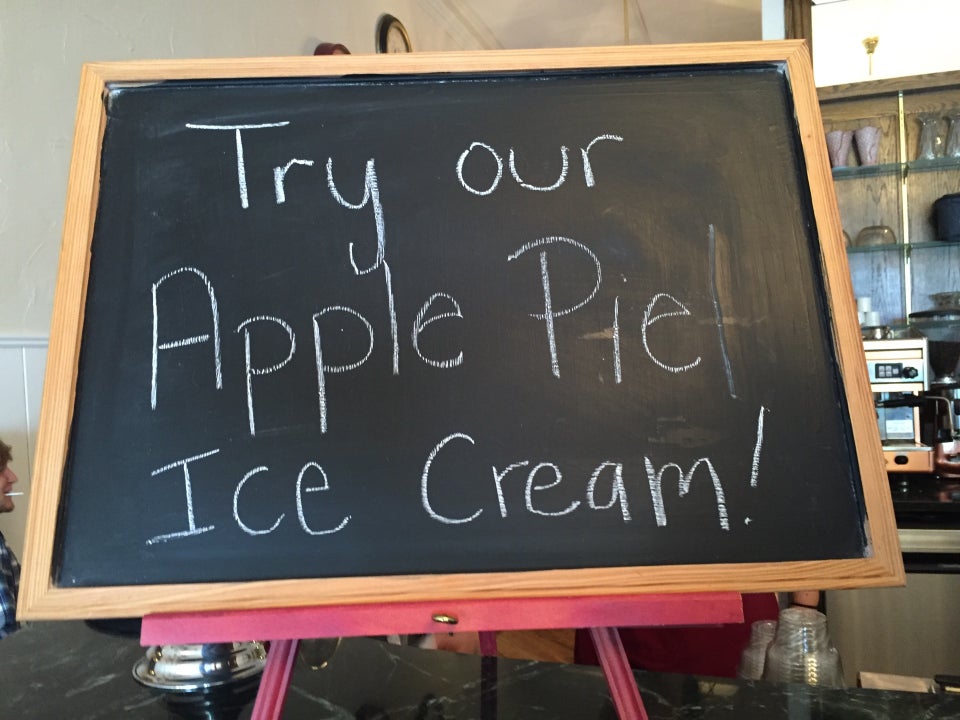 Try our
Apple Pie
Ice Cream!